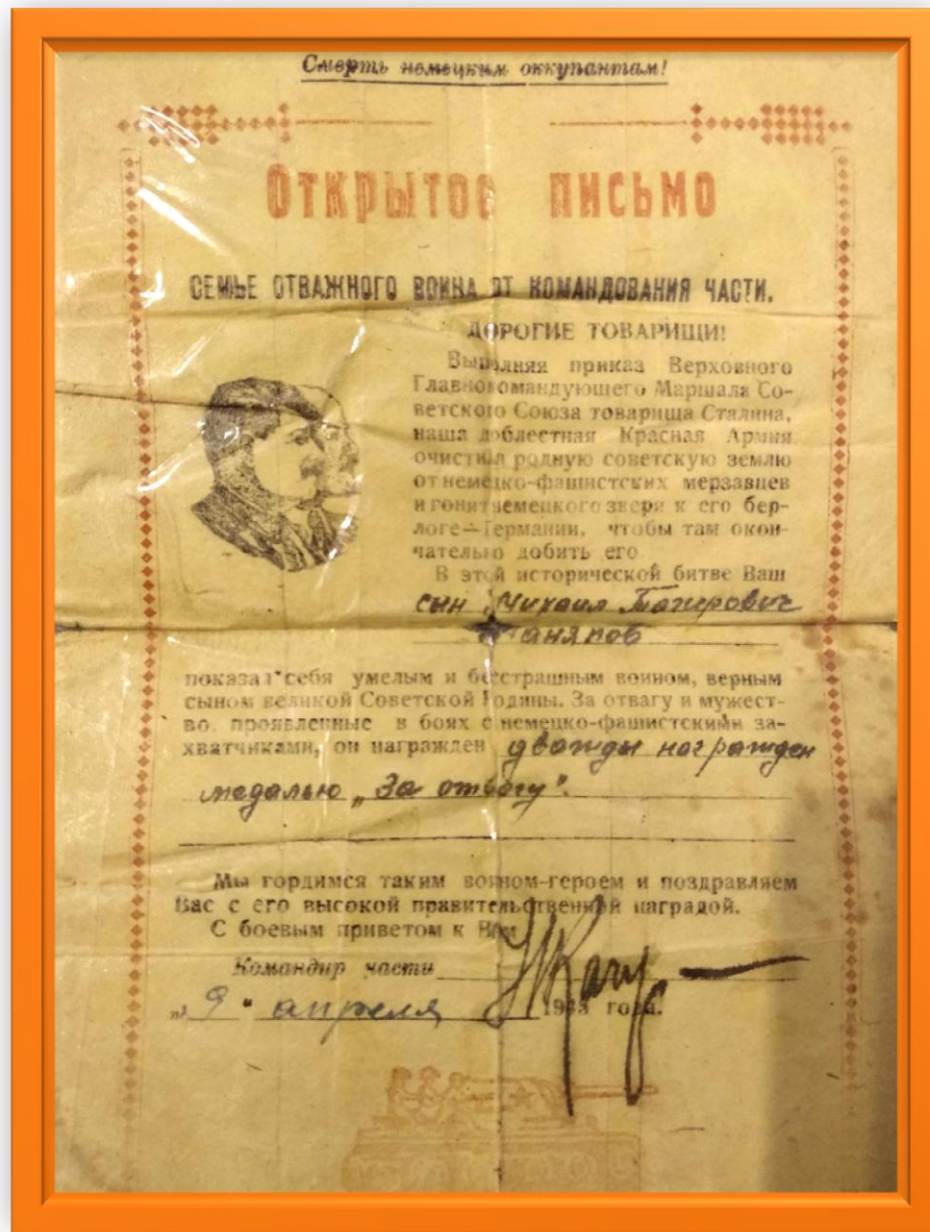 Смерть немецким оккупантам!
Открытое письмо
СЕМЬЕ ОТВАЖНОГО ВОИНА ОТ КОМАНДОВАНИЯ ЧАСТИ.
ДОРОГИЕ ТОВАРИЩИ!
Выполняя приказ Верховного
Главнокомандующего Маршала Со-
ветского Союза товарища Сталина,
наша доблестная Красная Армия
очистила родную советскую землю
от немецко-фашистских мерзавцев
и гонит немецкого зверя к его бер-
логе—Германии, чтобы там окон-
чательно добить его
В этой исторической битве Ваш
сын Михаил Тагирович
показал себя умелым и бесстрашным воином, верным
сыном великой Советской Родины. За отвагу и мужест-
во, проявленные в боях с немецко-фашистскими за-
хватчиками, он награжден дважды награжден
медалью „За отвагу".
Мы гордимся таким воином-героем и поздравляем
Вас с его высокой правительственной наградой.
С боевым приветом к Вам
Командир части
„9" апреля 1945 года.